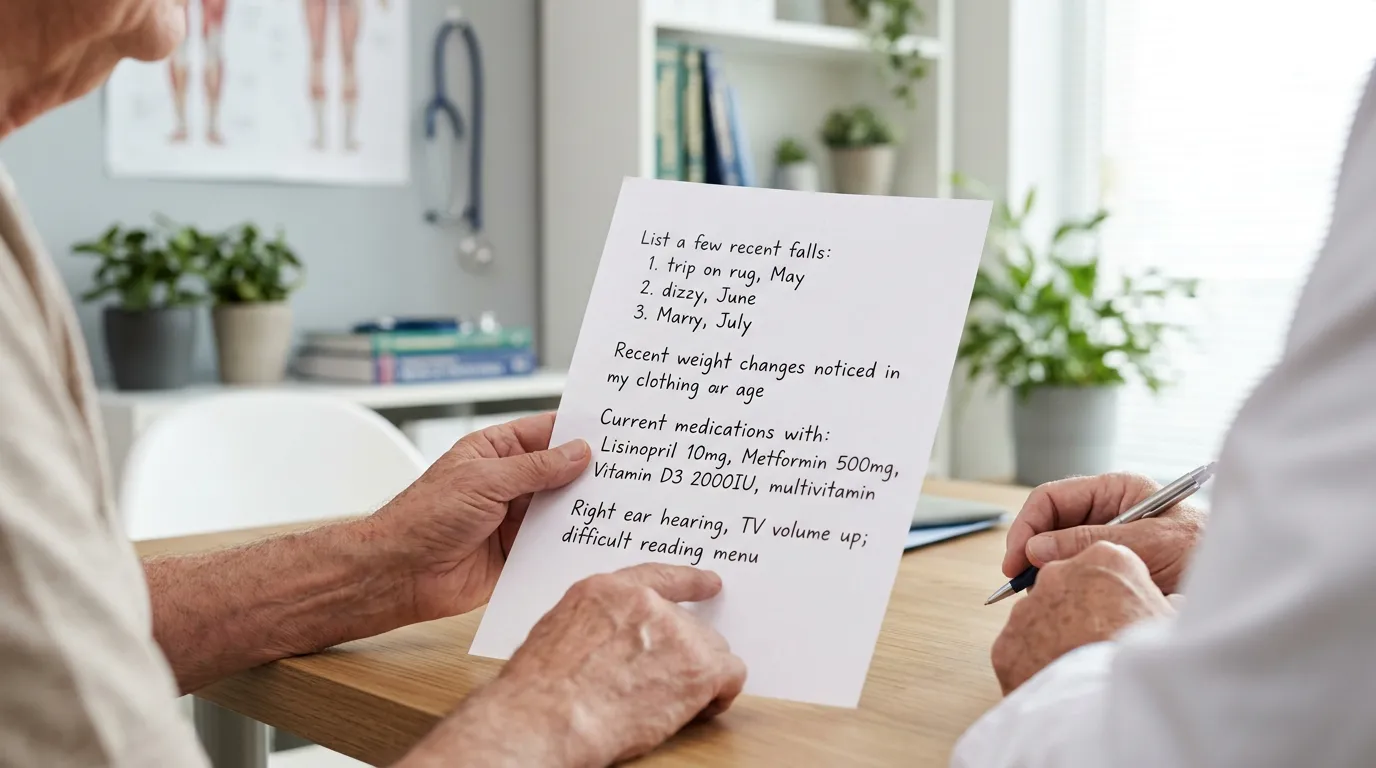 List a few recent falls:
1. trip on rug, May
2. dizzy, June
3. Marry, July
Recent weight changes noticed in
my clothing or age
Current medications with:
Lisinopril 10mg, Metformin 500mg,
Vitamin D3 2000IU, multivitamin
Right ear hearing, TV volume up;
difficult reading menu